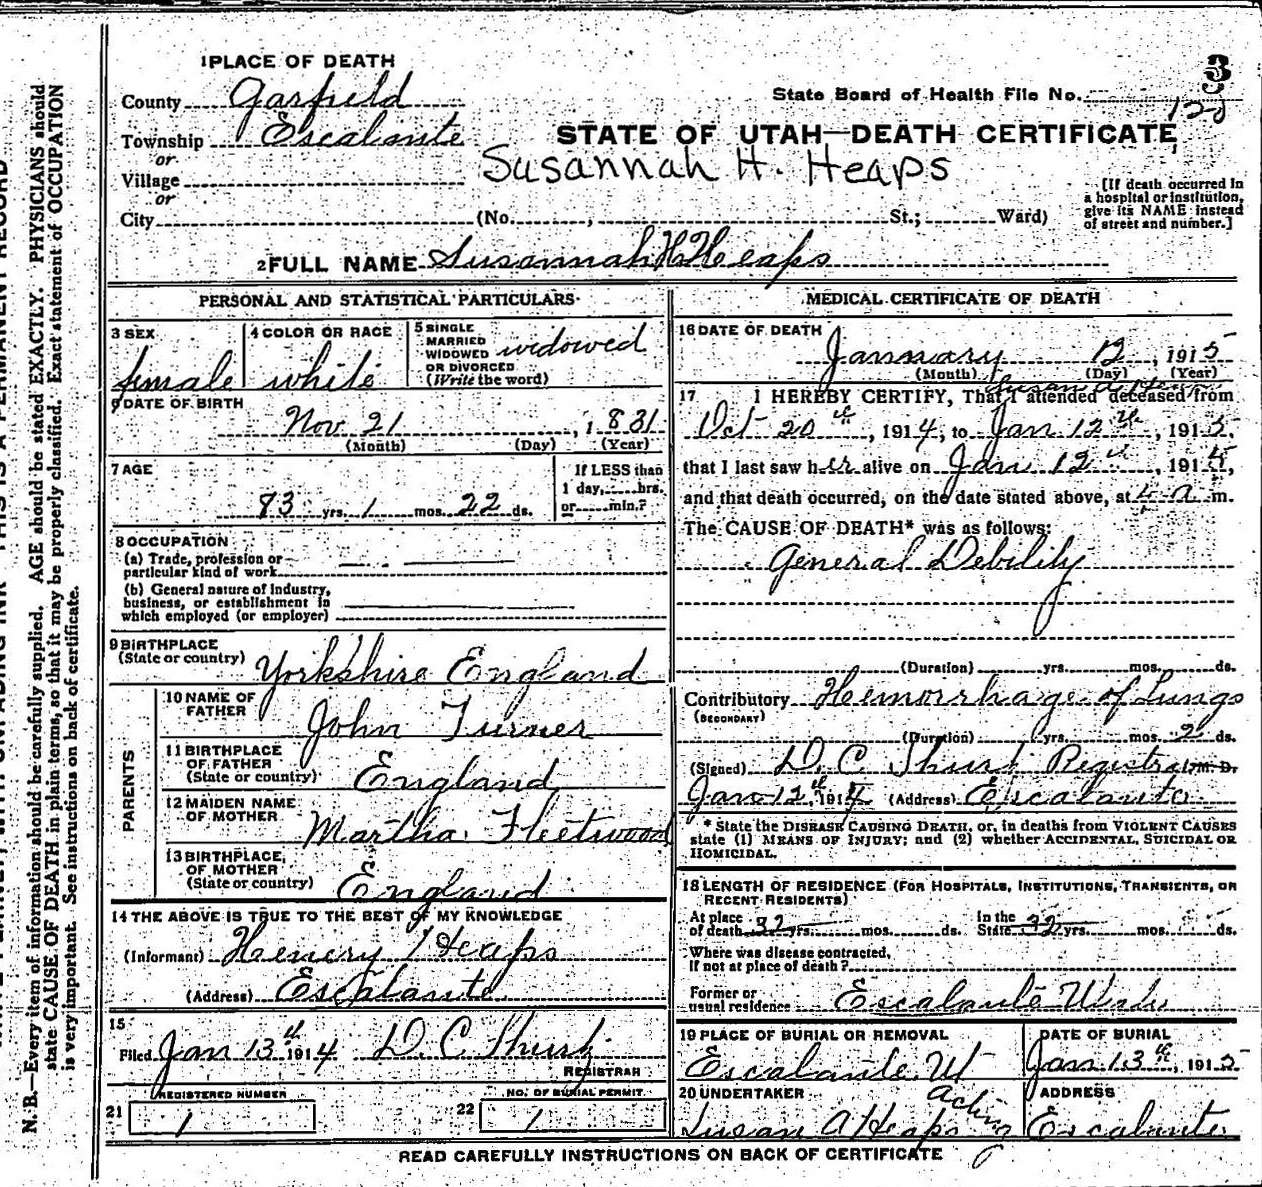 1 PLACE OF DEATH
County Garfield
Township Escalante
or
Village
or
City (No. , St.; Ward)
3
State Board of Health File No.
STATE OF UTAH—DEATH CERTIFICATE
Susannah H. Heaps
[If death occurred in
a hospital or institution,
give its NAME instead
of street and number.]
2 FULL NAME Susannah H Heaps
PERSONAL AND STATISTICAL PARTICULARS
3 SEX
female
4 COLOR OR RACE
white
5 SINGLE
MARRIED
WIDOWED
OR DIVORCED
(Write the word)
widowed
6 DATE OF BIRTH
Nov 21, 1831
(Month) (Day) (Year)
7 AGE
83 yrs. 1 mos. 22 ds.
If LESS than
1 day, hrs.
or min.?
8 OCCUPATION
(a) Trade, profession or
particular kind of work
(b) General nature of industry,
business, or establishment in
which employed (or employer)
9 BIRTHPLACE
(State or country) Yorkshire England
PARENTS
10 NAME OF
FATHER
John Turner
11 BIRTHPLACE
OF FATHER
(State or country) England
12 MAIDEN NAME
OF MOTHER
Martha Fleetwood
13 BIRTHPLACE
OF MOTHER
(State or country) England
14 THE ABOVE IS TRUE TO THE BEST OF MY KNOWLEDGE
(Informant) Henery Heaps
(Address) Escalante
15
Filed Jan 13th 1914 D. C. Shurtz
REGISTRAR
REGISTERED NUMBER
21 1
NO. OF BURIAL PERMIT
22 1
MEDICAL CERTIFICATE OF DEATH
16 DATE OF DEATH
January 12, 1915
(Month) (Day) (Year)
17 I HEREBY CERTIFY, That I attended deceased from
Oct 20th, 1914, to Jan 12th, 1915,
that I last saw her alive on Jan 12, 1915,
and that death occurred, on the date stated above, at 4 a m.
The CAUSE OF DEATH* was as follows:
General Debility
(Duration) yrs. mos. ds.
Contributory Hemorrhage of Lungs
(SECONDARY)
(Duration) yrs. mos. 2 ds.
(Signed) D. C. Shurtz Registrar M. D.
Jan 12th, 191 (Address) Escalante
* State the DISEASE CAUSING DEATH, or, in deaths from VIOLENT CAUSES
state (1) MEANS OF INJURY; and (2) whether ACCIDENTAL, SUICIDAL OR
HOMICIDAL.
18 LENGTH OF RESIDENCE (FOR HOSPITALS, INSTITUTIONS, TRANSIENTS, OR
RECENT RESIDENTS)
At place
of death 32 yrs. mos. ds.
In the
State 32 yrs. mos. ds.
Where was disease contracted,
If not at place of death?
Former or
usual residence Escalante
19 PLACE OF BURIAL OR REMOVAL
Escalante Ut
DATE OF BURIAL
Jan 13th, 1915
20 UNDERTAKER
Susan A Heaps Acting
ADDRESS
Escalante
READ CAREFULLY INSTRUCTIONS ON BACK OF CERTIFICATE
N. B.—Every item of information should be carefully supplied. AGE should be stated EXACTLY. PHYSICIANS should
state CAUSE OF DEATH in plain terms, so that it may be properly classified. Exact statement of OCCUPATION
is very important. See instructions on back of certificate.